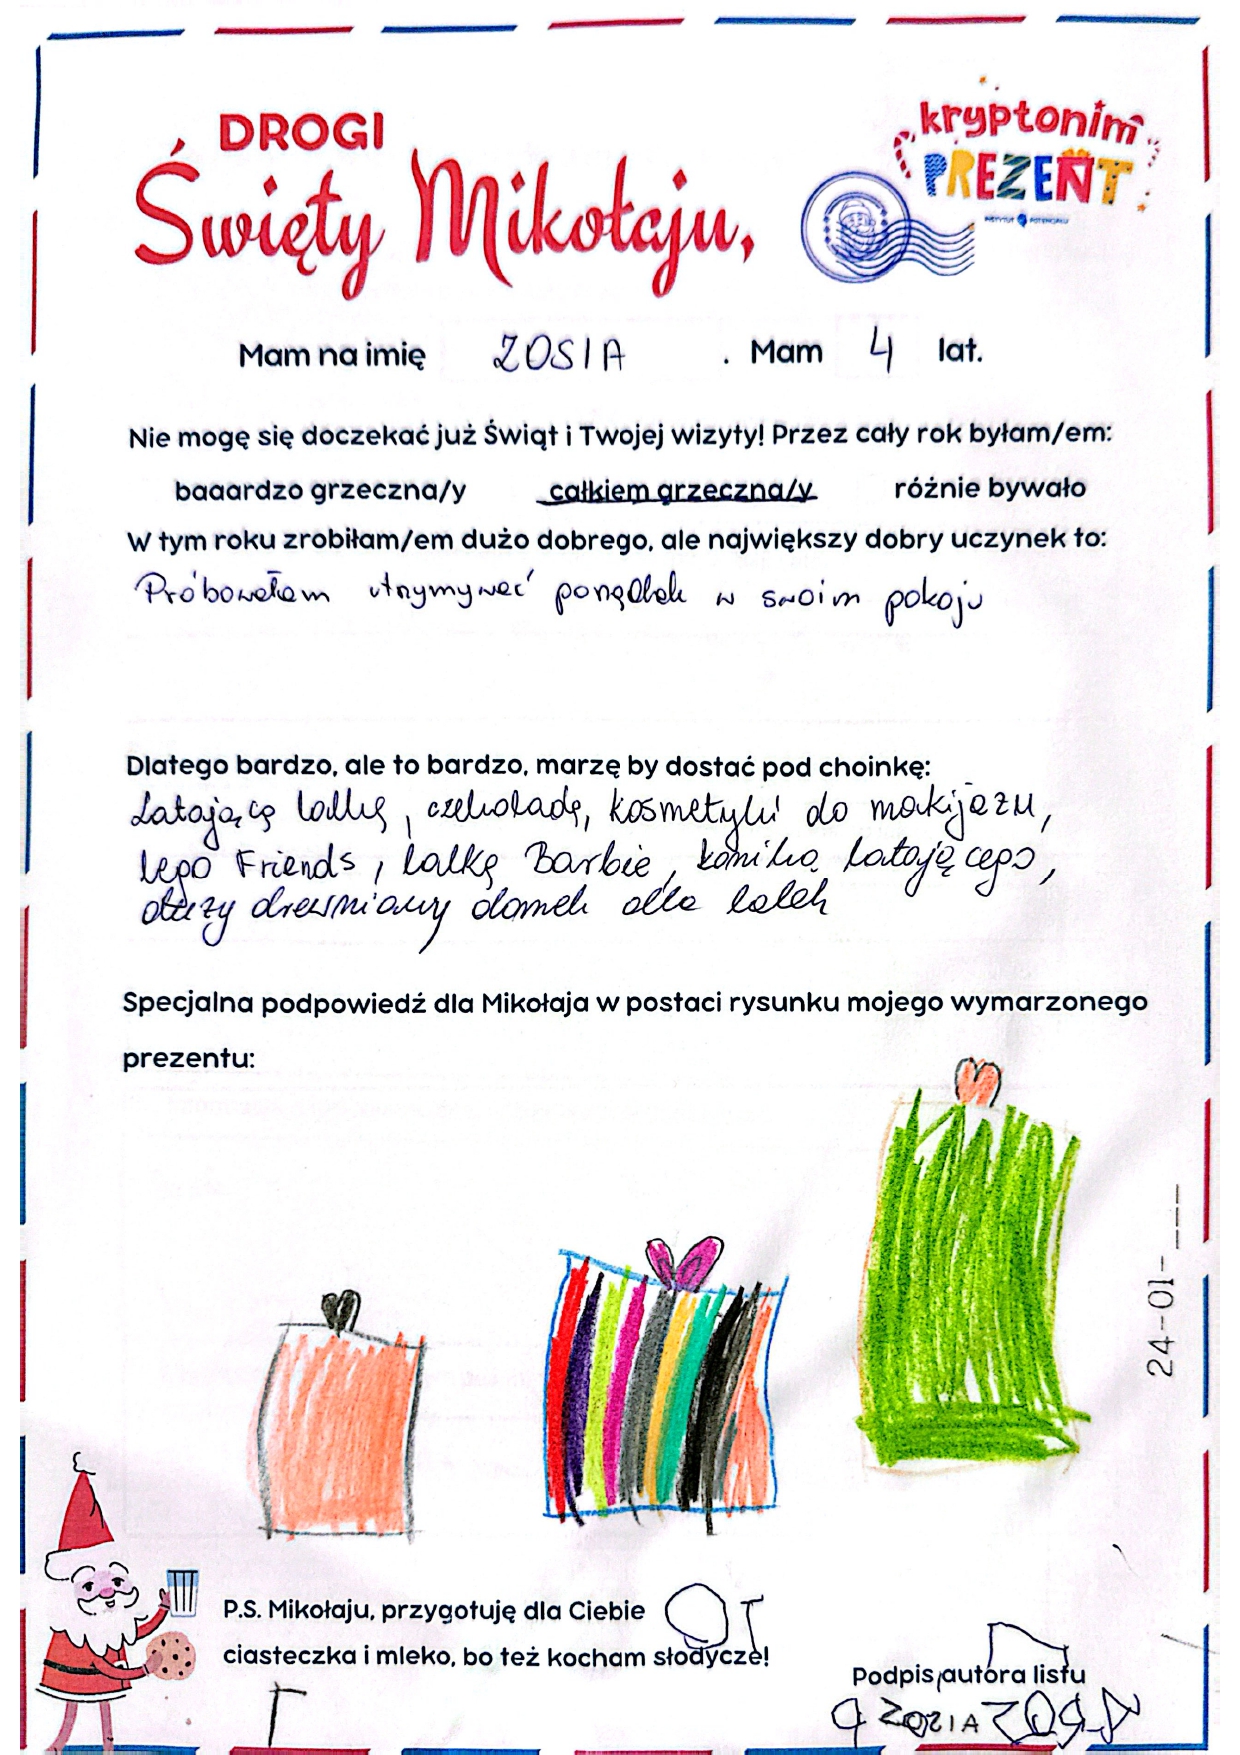 DROGI
Święty Mikołaju,
kryptonim
PREZENT
INSTYTUT POTENCJAŁU
Mam na imię ZOSIA . Mam 4 lat.
Nie mogę się doczekać już Świąt i Twojej wizyty! Przez cały rok byłam/em:
baaardzo grzeczna/y całkiem grzeczna/y różnie bywało
W tym roku zrobiłam/em dużo dobrego, ale największy dobry uczynek to:
Próbowałam utrzymywać porządek w swoim pokoju
Dlatego bardzo, ale to bardzo, marzę by dostać pod choinkę:
Latającą lalkę, czekoladę, kosmetyki do makijażu,
lego Friends, lalkę Barbie, konika latającego,
duży drewniany domek dla lalek
Specjalna podpowiedź dla Mikołaja w postaci rysunku mojego wymarzonego
prezentu:
24-01-___
P.S. Mikołaju, przygotuję dla Ciebie
ciasteczka i mleko, bo też kocham słodycze!
Podpis autora listu
ZOSIA